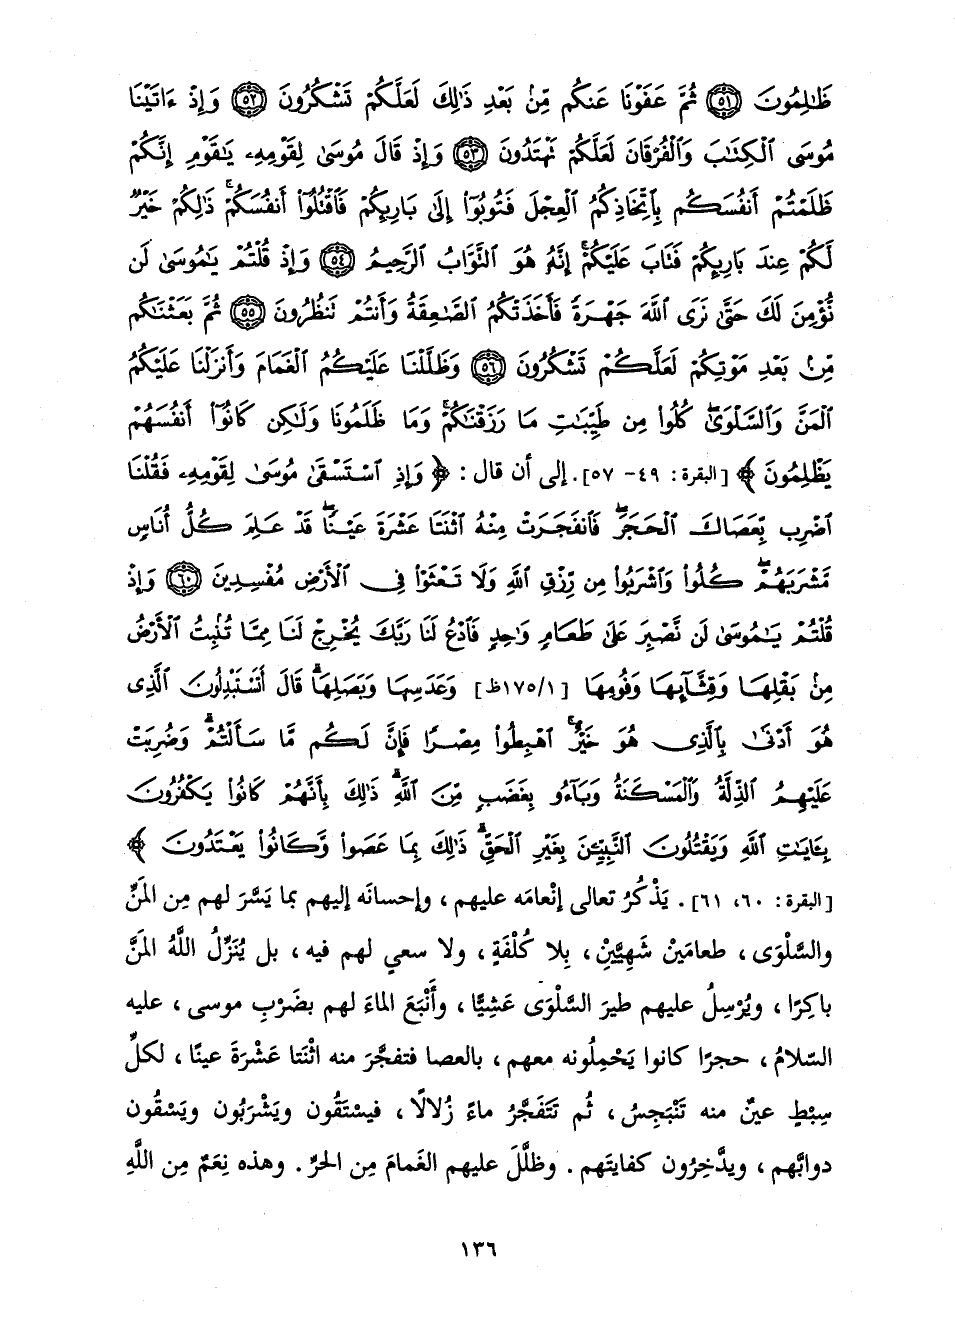 ظَٰلِمُونَ ﴿٥١﴾ ثُمَّ عَفَوْنَا عَنكُم مِّنۢ بَعْدِ ذَٰلِكَ لَعَلَّكُمْ تَشْكُرُونَ ﴿٥٢﴾ وَإِذْ ءَاتَيْنَا
مُوسَى ٱلْكِتَٰبَ وَٱلْفُرْقَانَ لَعَلَّكُمْ تَهْتَدُونَ ﴿٥٣﴾ وَإِذْ قَالَ مُوسَىٰ لِقَوْمِهِۦ يَٰقَوْمِ إِنَّكُمْ
ظَلَمْتُمْ أَنفُسَكُم بِٱتِّخَاذِكُمُ ٱلْعِجْلَ فَتُوبُوٓا۟ إِلَىٰ بَارِئِكُمْ فَٱقْتُلُوٓا۟ أَنفُسَكُمْ ۚ ذَٰلِكُمْ خَيْرٌ
لَّكُمْ عِندَ بَارِئِكُمْ فَتَابَ عَلَيْكُمْ ۚ إِنَّهُۥ هُوَ ٱلتَّوَّابُ ٱلرَّحِيمُ ﴿٥٤﴾ وَإِذْ قُلْتُمْ يَٰمُوسَىٰ لَن
نُّؤْمِنَ لَكَ حَتَّىٰ نَرَى ٱللَّهَ جَهْرَةً فَأَخَذَتْكُمُ ٱلصَّٰعِقَةُ وَأَنتُمْ تَنظُرُونَ ﴿٥٥﴾ ثُمَّ بَعَثْنَٰكُم
مِّنۢ بَعْدِ مَوْتِكُمْ لَعَلَّكُمْ تَشْكُرُونَ ﴿٥٦﴾ وَظَلَّلْنَا عَلَيْكُمُ ٱلْغَمَامَ وَأَنزَلْنَا عَلَيْكُمُ
ٱلْمَنَّ وَٱلسَّلْوَىٰ ۖ كُلُوا۟ مِن طَيِّبَٰتِ مَا رَزَقْنَٰكُمْ ۖ وَمَا ظَلَمُونَا وَلَٰكِن كَانُوٓا۟ أَنفُسَهُمْ
يَظْلِمُونَ ﴾ [البقرة: ٤٩- ٥٧]. إلى أن قال: ﴿ وَإِذِ ٱسْتَسْقَىٰ مُوسَىٰ لِقَوْمِهِۦ فَقُلْنَا
ٱضْرِب بِّعَصَاكَ ٱلْحَجَرَ ۖ فَٱنفَجَرَتْ مِنْهُ ٱثْنَتَا عَشْرَةَ عَيْنًا ۖ قَدْ عَلِمَ كُلُّ أُنَاسٍ
مَّشْرَبَهُمْ ۖ كُلُوا۟ وَٱشْرَبُوا۟ مِن رِّزْقِ ٱللَّهِ وَلَا تَعْثَوْا۟ فِى ٱلْأَرْضِ مُفْسِدِينَ ﴿٦٠﴾ وَإِذْ
قُلْتُمْ يَٰمُوسَىٰ لَن نَّصْبِرَ عَلَىٰ طَعَامٍ وَٰحِدٍ فَٱدْعُ لَنَا رَبَّكَ يُخْرِجْ لَنَا مِمَّا تُنۢبِتُ ٱلْأَرْضُ
مِنۢ بَقْلِهَا وَقِثَّآئِهَا وَفُومِهَا [١/١٧٥ظ] وَعَدَسِهَا وَبَصَلِهَا ۖ قَالَ أَتَسْتَبْدِلُونَ ٱلَّذِى
هُوَ أَدْنَىٰ بِٱلَّذِى هُوَ خَيْرٌ ۚ ٱهْبِطُوا۟ مِصْرًا فَإِنَّ لَكُم مَّا سَأَلْتُمْ ۗ وَضُرِبَتْ
عَلَيْهِمُ ٱلذِّلَّةُ وَٱلْمَسْكَنَةُ وَبَآءُو بِغَضَبٍ مِّنَ ٱللَّهِ ۗ ذَٰلِكَ بِأَنَّهُمْ كَانُوا۟ يَكْفُرُونَ
بِـَٔايَٰتِ ٱللَّهِ وَيَقْتُلُونَ ٱلنَّبِيِّـۧنَ بِغَيْرِ ٱلْحَقِّ ۗ ذَٰلِكَ بِمَا عَصَوا۟ وَّكَانُوا۟ يَعْتَدُونَ ﴾
[البقرة: ٦٠، ٦١]. يَذْكُرُ تعالى إنْعامَه عليهم، وإحسانَه إليهم بما يَسَّرَ لهم مِن المَنِّ
والسَّلْوَى، طعامَيْنِ شَهِيَّيْنِ، بِلا كُلْفَةٍ، ولا سعيٍ لهم فيه، بل يُنَزِّلُ اللَّهُ المَنَّ
باكِرًا، ويُرْسِلُ عليهم طيرَ السَّلْوَى عَشِيًّا، وأَنْبَعَ الماءَ لهم بضَرْبِ موسى، عليه
السّلامُ، حجرًا كانوا يَحْمِلُونه معهم، بالعصا فتفجَّرَ منه اثْنَتا عَشْرَةَ عينًا، لكلِّ
سِبْطٍ عينٌ منه تَنْبَجِسُ، ثُم تَتَفَجَّرُ ماءً زُلالًا، فيستَقُون ويَشْرَبُون ويَسْقُون
دوابَّهم، ويدَّخِرُون كفايتَهم. وظلَّلَ عليهم الغَمامَ مِن الحرِّ. وهذه نِعَمٌ مِن اللَّهِ
١٣٦